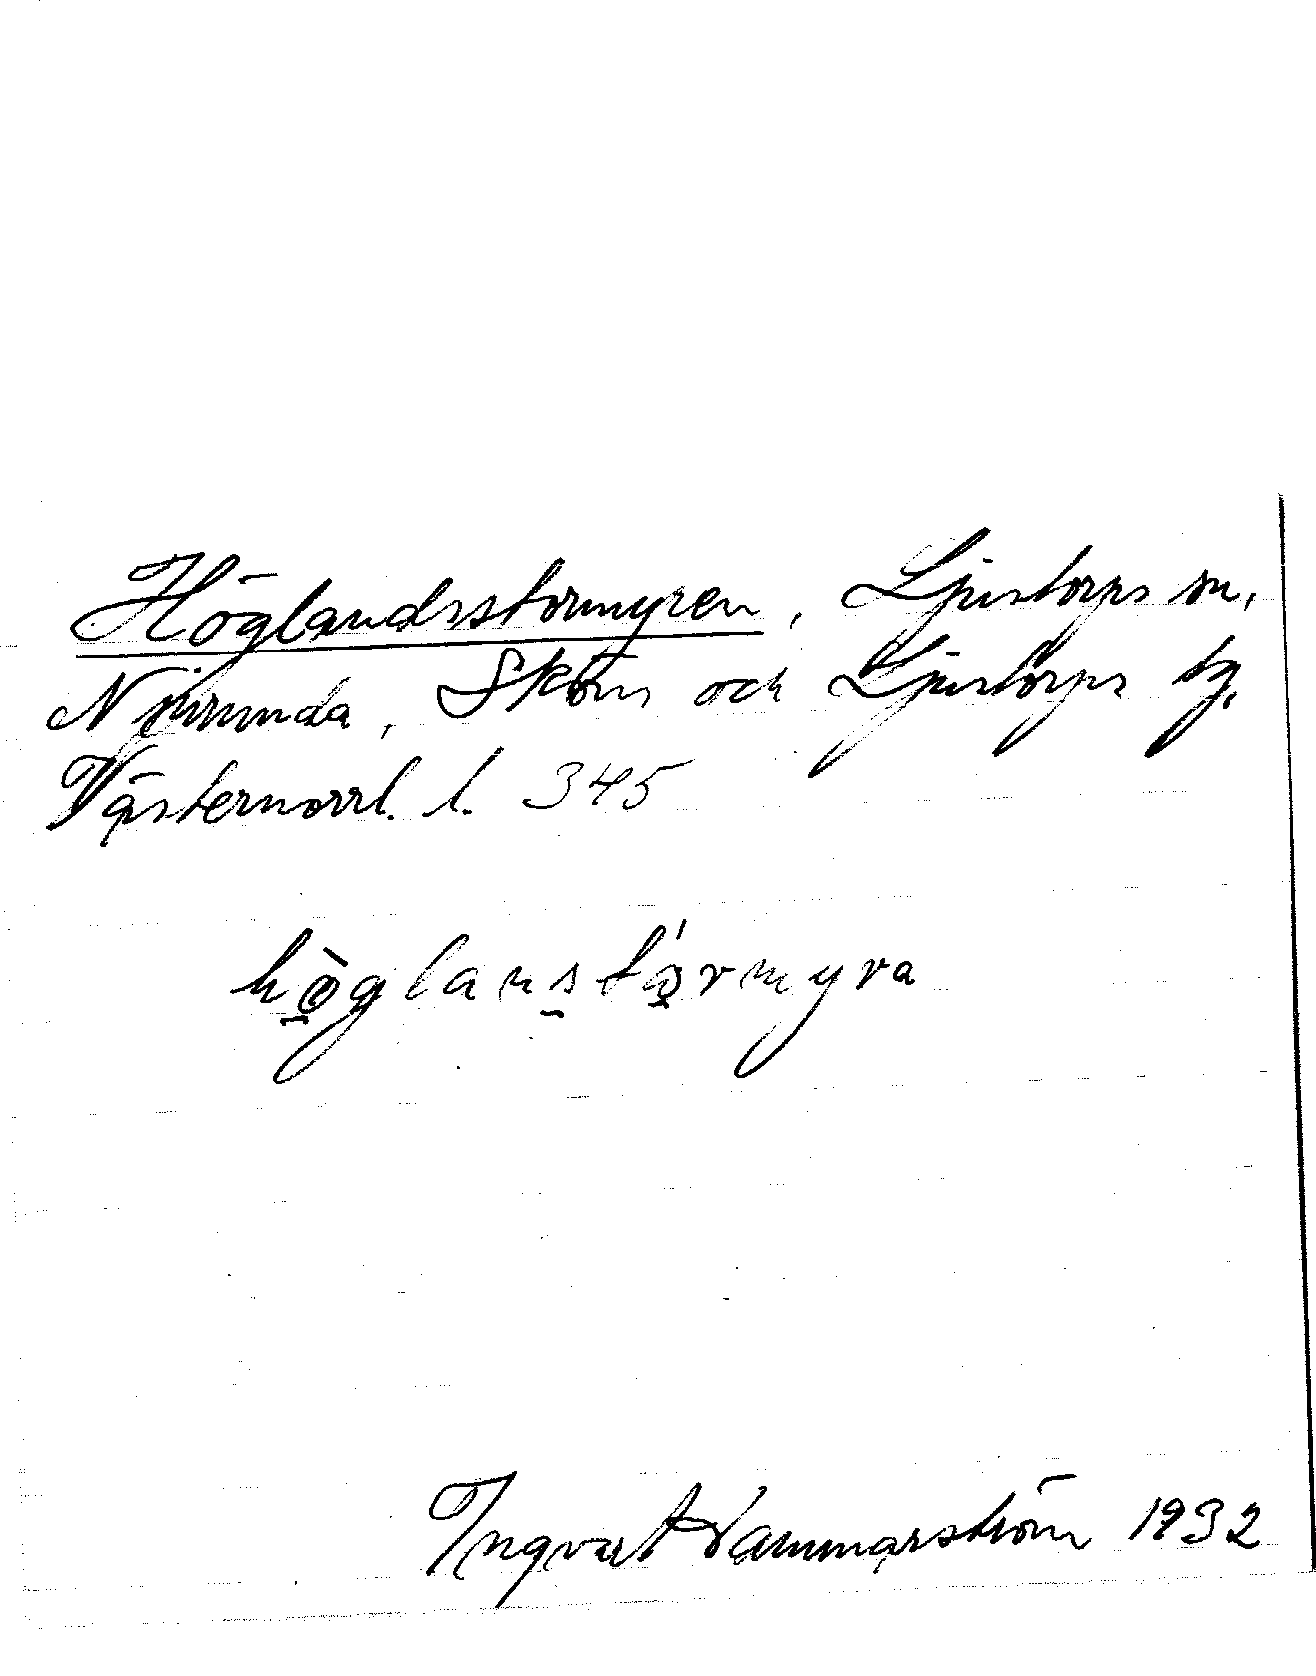 Höglandsstormyren, Ljustorps sn,
Njurunda, Sköns och Ljustorps tg,
Västernorrl. l. 345
hö̀glanstǻrmyra
Ingvart Hammarström 1932